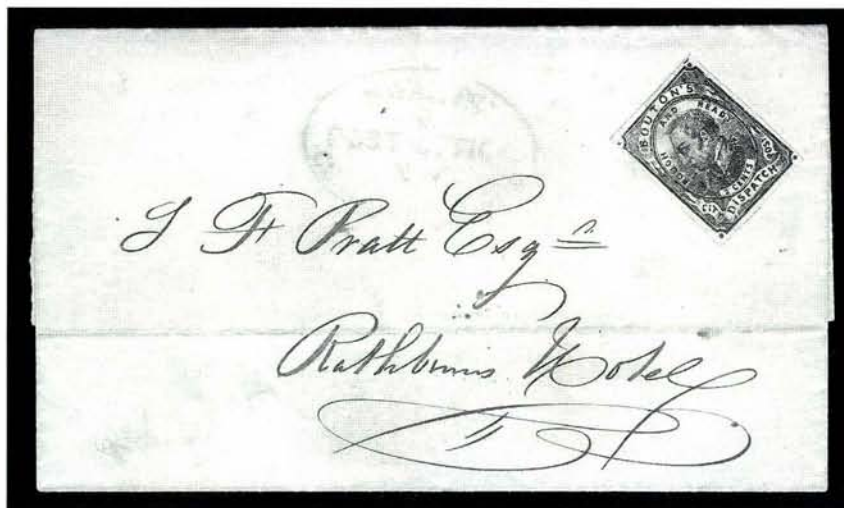 BOUTON'S
ROUGH AND READY
2 CENTS
CITY DISPATCH POST
S Ft Pratt Esqr
Rathbuns Hotel